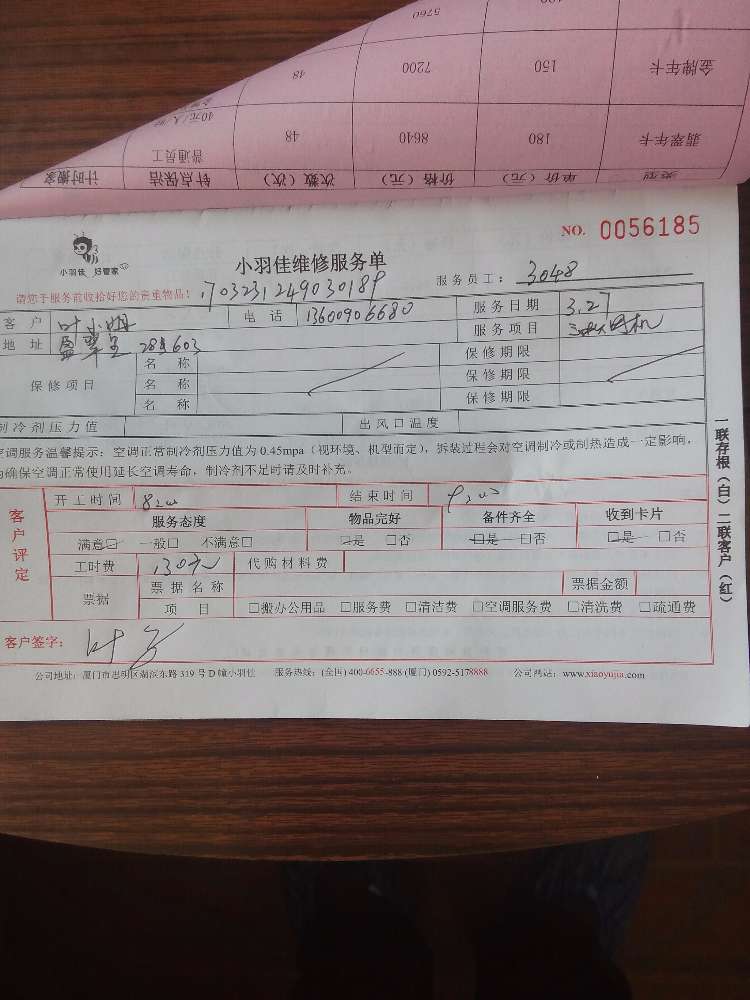 5760
金牌年卡 150 7200 48
翡翠年卡 180 8640 48 普通员工 40元/人/时
类型 单价(元) 价格(元) 次数(次) 针点保洁 计时搬家
NO. 0056185
小羽佳 好管家
小羽佳维修服务单
服务员工: 3048
请您于服务前收拾好您的贵重物品!
1703231249030189
客户 叶小姐 电话 13600906680 服务日期 3.27
地址 盈翠里 28# 603 服务项目
保修项目 名称 保修期限
名称 保修期限
名称 保修期限
制冷剂压力值 出风口温度
空调服务温馨提示: 空调正常制冷剂压力值为0.45mpa(视环境、机型而定), 拆装过程会对空调制冷或制热造成一定影响,
为确保空调正常使用延长空调寿命, 制冷剂不足时请及时补充。
客户评定
开工时间 8:00 结束时间 9:00
服务态度 物品完好 备件齐全 收到卡片
满意☑ 一般□ 不满意□ ☑是 □否 ☑是 □否 ☑是 □否
工时费 130元 代购材料费
票据 票据名称 票据金额
项目 □搬办公用品 □服务费 □清洁费 □空调服务费 □清洗费 □疏通费
客户签字: 叶
一联存根(白) 二联客户(红)
公司地址: 厦门市思明区湖滨东路319号D幢小羽佳 服务热线: (全国) 400-6655-888 (厦门) 0592-5178888 公司网站: www.xiaoyujia.com